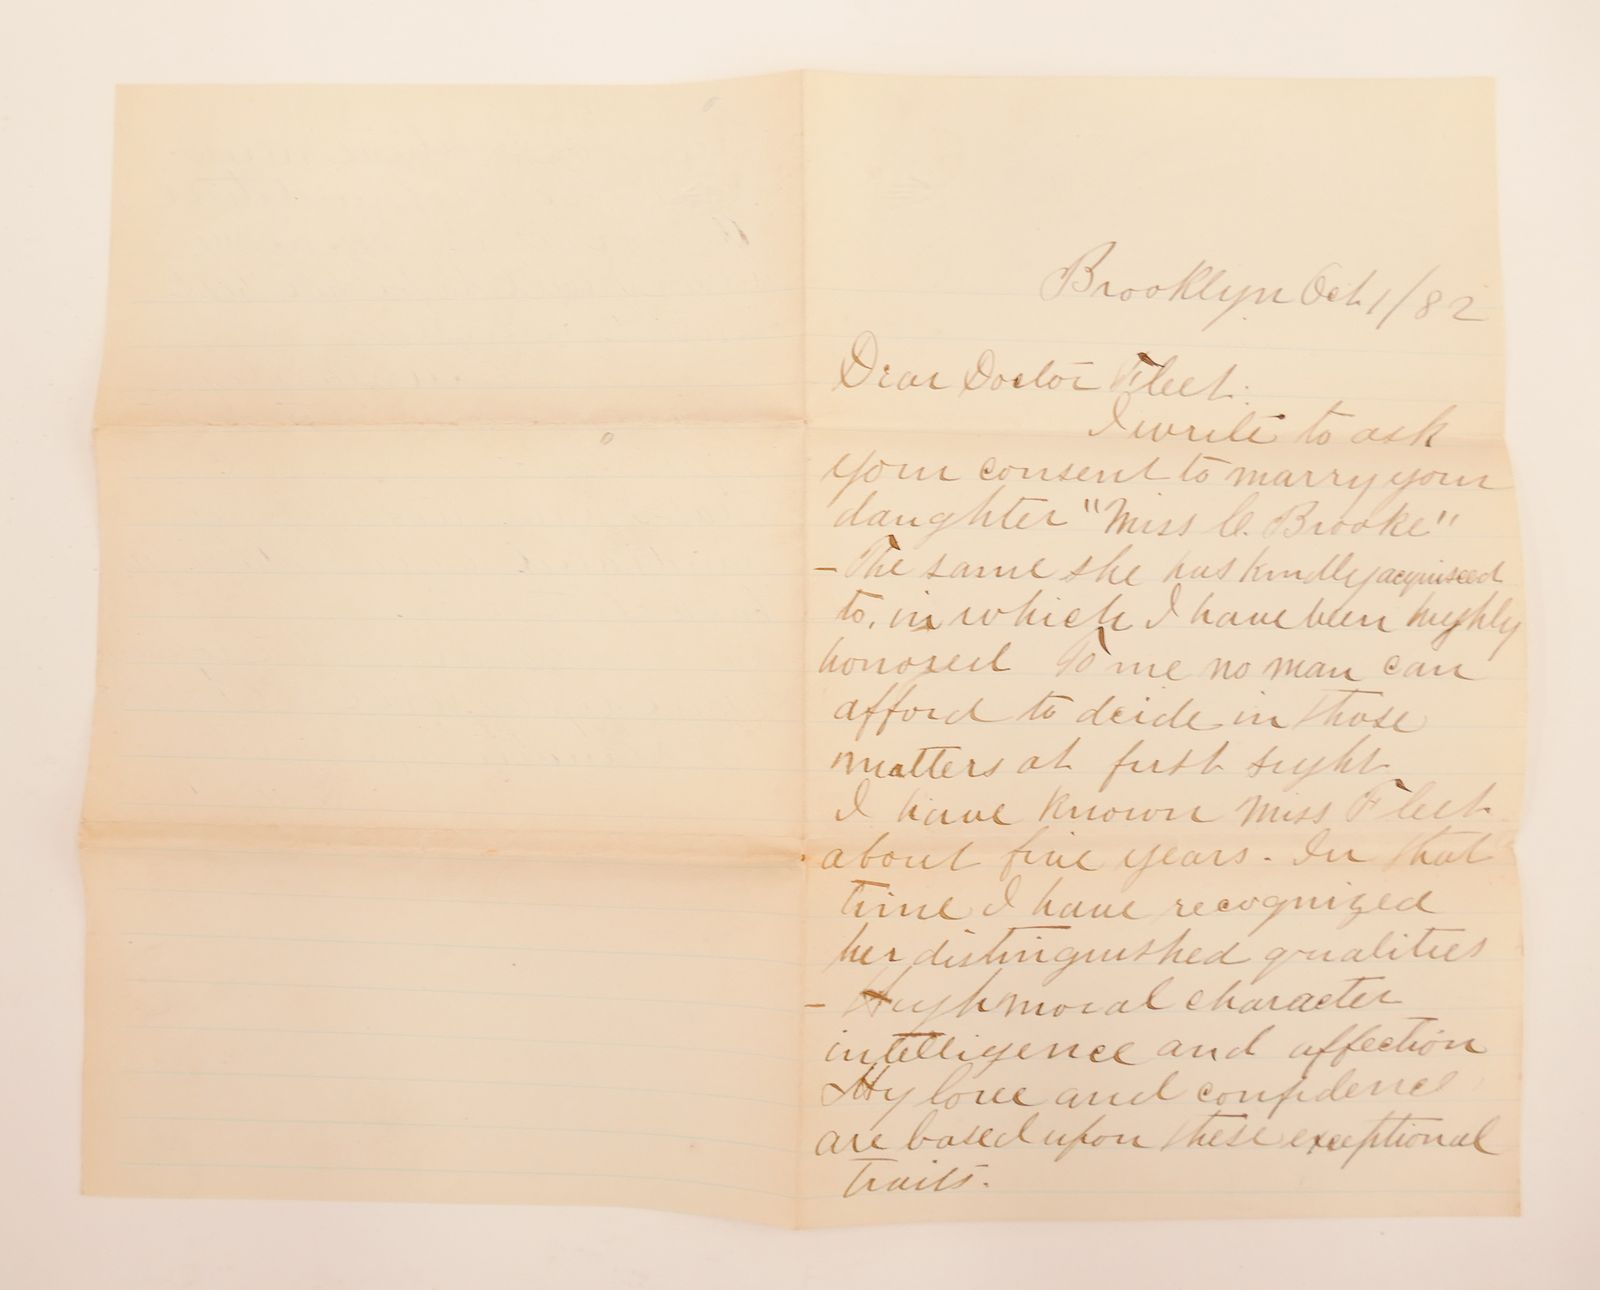 Brooklyn Oct 1/82
Dear Doctor Fleet.
I write to ask
your consent to marry your
daughter "Miss C. Brooke"
- The same she has kindly acquisced
to, in which I have been highly
honored To me no man can
afford to dcide in those
matters at first sight
I have known Miss Fleet
about five years. In that
time I have recognized
her distinguished qualities
- High moral character
intelligence and affection
My love and confidence
are based upon these exceptional
traits.